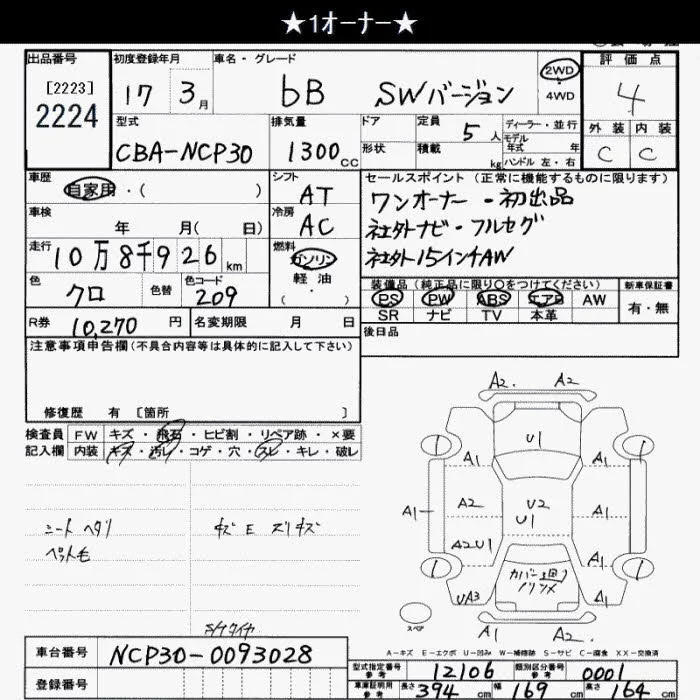 ★1オーナー★
出品番号
[2223]
2224
初度登録年月
17 3月
車名・グレード
bB SWバージョン
2WD
4WD
評価点
4
外装 内装
C C
型式
CBA-NCP30
排気量
1300cc
ドア
形状
定員 5人
積載 kg
ディーラー・並行
モデル
年式 年
ハンドル 左・右
車歴
自家用・( )
シフト
AT
車検
年 月( 日)
冷房
AC
走行
10万8千926km
燃料
ガソリン
軽油
( ・ )
色
クロ
色替
色コード
209
R券 10,270円
名変期限 月 日
セールスポイント(正常に機能するものに限ります)
ワンオーナー・初出品
社外ナビ・フルセグ
社外15インチAW
装備品(純正品に限り○をつけてください)
PS PW ABS エアB AW
SR ナビ TV 本革
新車保証書
有・無
後日品
注意事項申告欄(不具合内容等は具体的に記入して下さい)
修復歴 有 [箇所 ]
検査員
記入欄
FW キズ・飛石・ヒビ割・リペア跡・×要
内装 キズ・汚レ・コゲ・穴・スレ・キレ・破レ
シートヘタリ
ペット毛
キズ E スリキズ
A2. A2
U1
A1 A1
A1 A2 U2 A1 A1
U1
A2U1 A1
カバー
UA3 A1
スペア
A1 A2.
A-キズ E-エクボ U-凹み W-補修跡 S-サビ C-腐食 XX-交換済
車台番号
NCP30-0093028
登録番号
型式指定番号
参考
12106
類別区分番号
参考
0001
車庫証明用
参考
長さ 394cm 幅 169cm 高さ 164cm